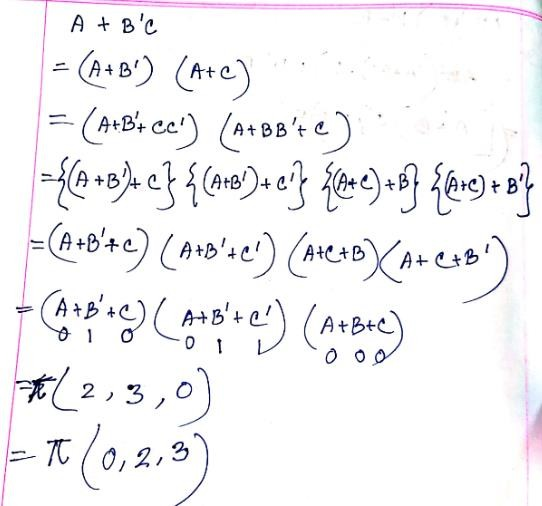 A + B'C
= (A+B') (A+C)
= (A+B'+CC') (A+BB'+C)
={(A+B')+C} {(A+B')+C'} {(A+C)+B} {(A+C)+B'}
= (A+B'+C) (A+B'+C') (A+C+B) (A+C+B')
= (A+B'+C) (A+B'+C') (A+B+C)
0 1 0 0 1 1 0 0 0
=π(2,3,0)
= π(0,2,3)